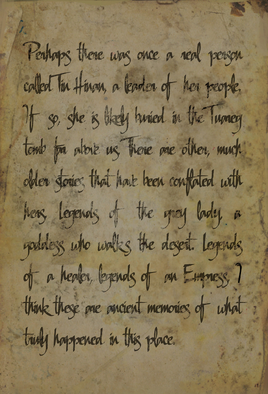 Perhaps there was once a real person
called Tin Hinan, a leader of her people.
If so, she is likely buried in the Tuareg
tomb far above us. There are other, much
older stories that have been conflated with
hers. Legends of the grey lady, a
goddess who walks the desert. Legends
of a healer, legends of an Empress. I
think these are ancient memories of what
truly happened in this place.